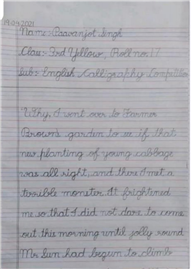 Name:- Pawanjot Singh
Class:- 3rd Yellow, Roll no:- 17
Sub:- English Calligraphy Competition
Why, I went over to Farmer
Brown's garden to see if that
new planting of young cabbage
was all right, and there I met a
terrible monster. It frightened
me so that I did not dare to come
out this morning until jolly round
Mr. Sun had begun to climb